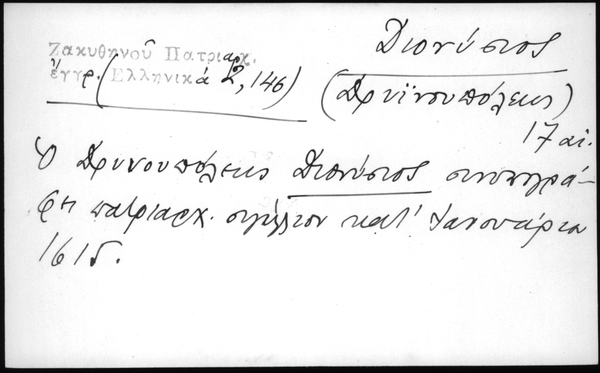 Ζακυθηνοῦ Πατριαρχ.
ἔγγρ. (Ἑλληνικά 2, 146)
Διονύσιος
(Δρυϊνουπόλεως)
17 αἰ.
Ὁ Δρυϊνουπόλεως Διονύσιος συνυπογρά-
φει πατριαρχ. σιγίλλιον κατ' Ἰανουάριον
1618.